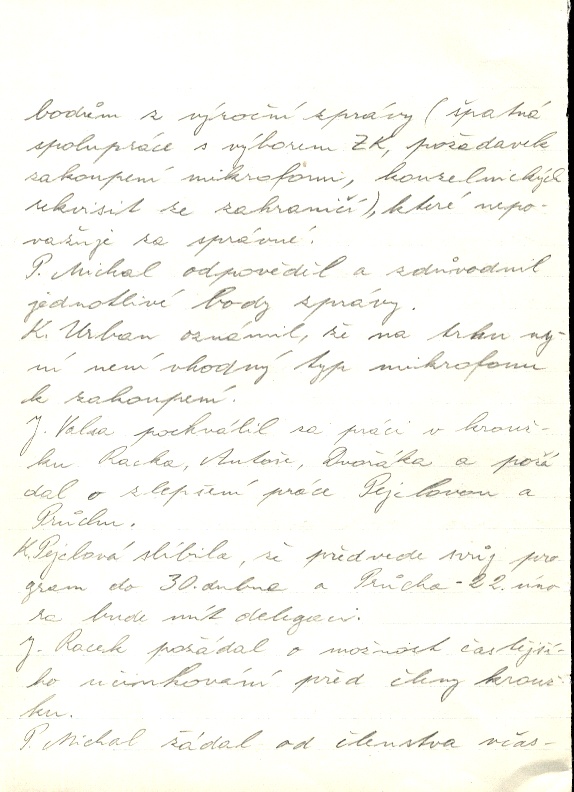 bodům z výroční zprávy (špatná
spolupráce s výborem ZK, požadavek
zakoupení mikrofonu, kouzelnických
rekvisit ze zahraničí), které nepo-
važuje za správné.
P. Michal odpověděl a zdůvodnil
jednotlivé body zprávy.
K. Urban oznámil, že na trhu ny-
ní není vhodný typ mikrofonu
k zakoupení.
J. Valsa pochválil za práci v krouž-
ku Racka, Antoše, Dvořáka a požá
dal o zlepšení práce Pejclovou a
Průchu.
K. Pejclová slíbila, že předvede svůj pro
gram do 30. dubna a Průcha - 22. úno
ra bude mít delegaci.
J. Racek požádal o možnost častějši-
ho účinkování před členy krouž-
ku.
P. Michal žádal od členstva včas-